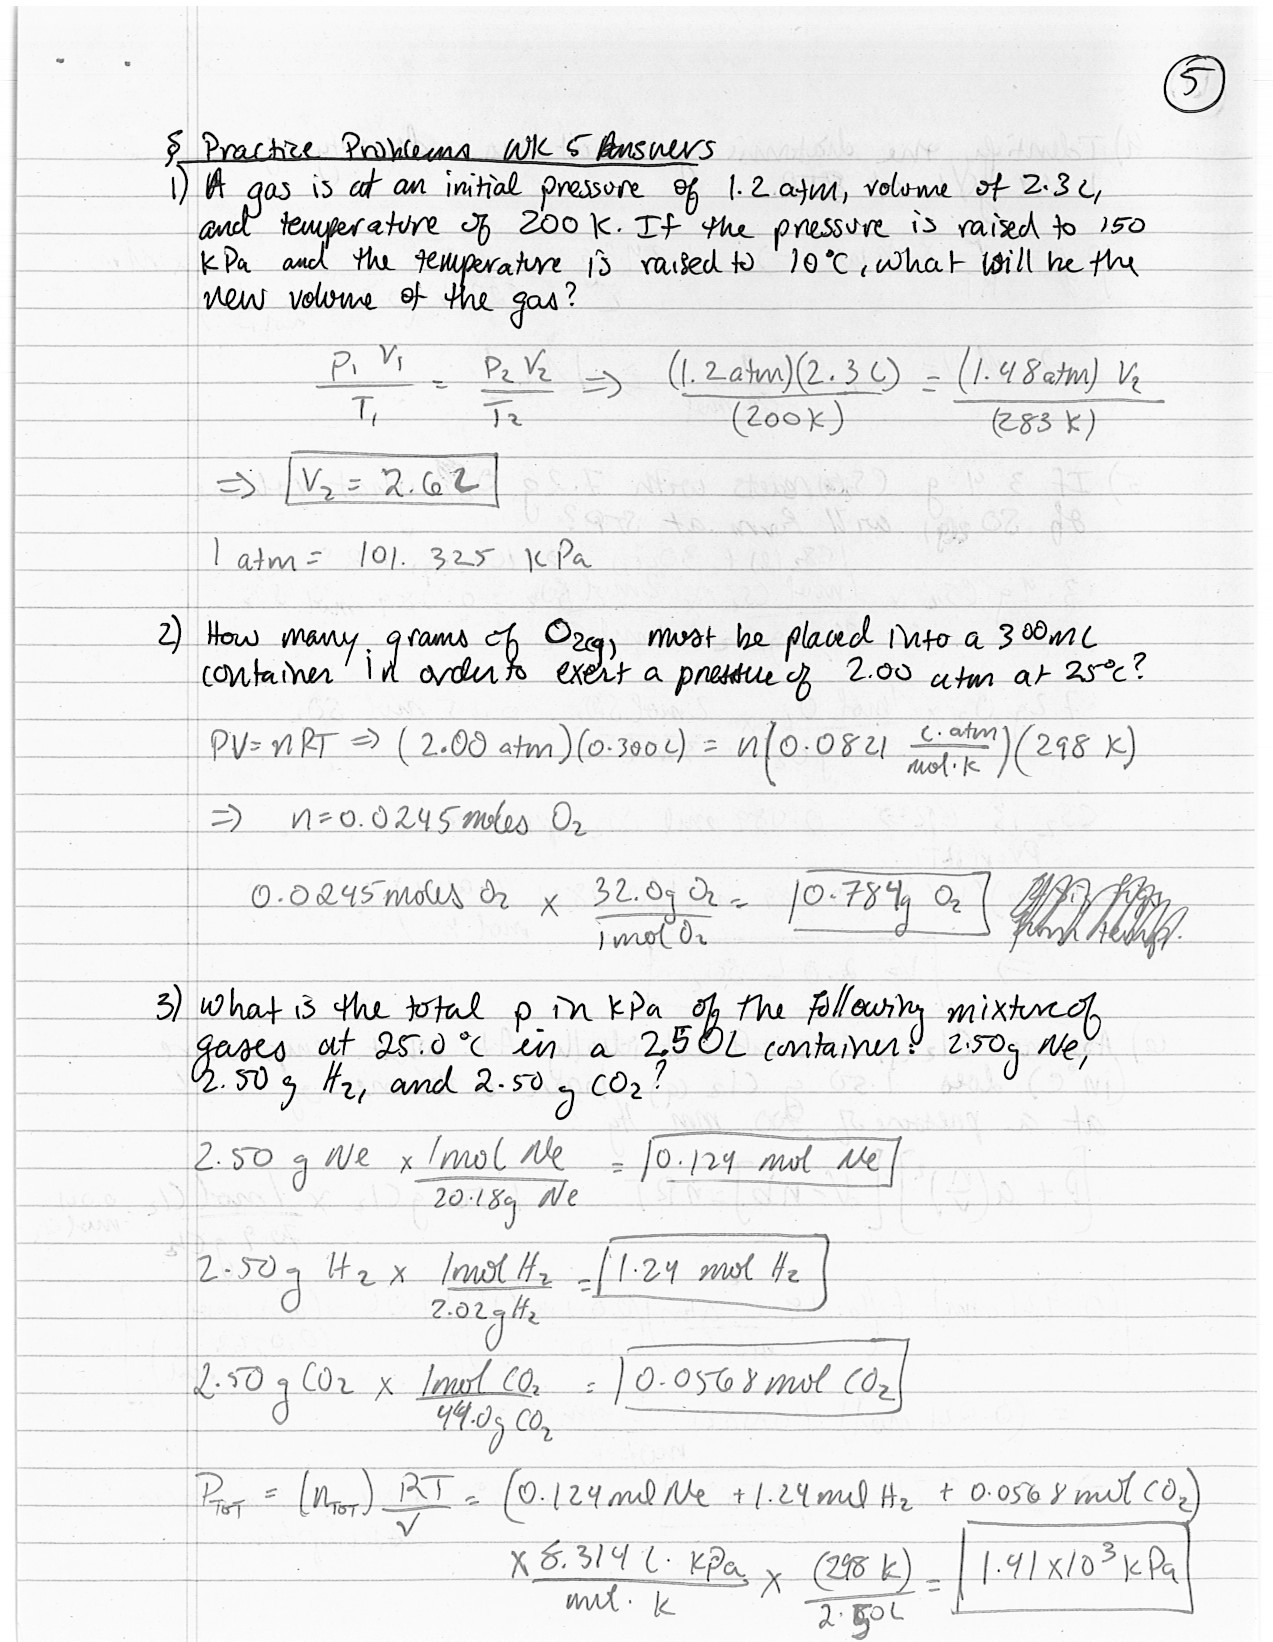 5
§ Practice Problems WK 5 Answers
1) A gas is at an initial pressure of 1.2 atm, volume of 2.3 L,
and temperature of 200 K. If the pressure is raised to 150
kPa and the temperature is raised to 10°C, what will be the
new volume of the gas?
P₁ V₁ / T₁ = P₂ V₂ / T₂ ⇒ (1.2 atm)(2.3 L) / (200 K) = (1.48 atm) V₂ / (283 K)
⇒ V₂ = 2.6 L
1 atm = 101.325 kPa
2) How many grams of O₂(g) must be placed into a 300 mL
container in order to exert a pressure of 2.00 atm at 25°C?
PV = nRT ⇒ (2.00 atm)(0.300 L) = n(0.0821 L·atm / mol·K)(298 K)
⇒ n = 0.0245 moles O₂
0.0245 moles O₂ × 32.0 g O₂ / 1 mol O₂ = 0.784 g O₂
3) What is the total p in kPa of the following mixture of
gases at 25.0°C in a 2.50 L container: 2.50 g Ne,
2.50 g H₂, and 2.50 g CO₂?
2.50 g Ne × 1 mol Ne / 20.18 g Ne = 0.124 mol Ne
2.50 g H₂ × 1 mol H₂ / 2.02 g H₂ = 1.24 mol H₂
2.50 g CO₂ × 1 mol CO₂ / 44.0 g CO₂ = 0.0568 mol CO₂
P_TOT = (n_TOT) RT / V = (0.124 mol Ne + 1.24 mol H₂ + 0.0568 mol CO₂)
× 8.314 L·kPa / mol·K × (298 K) / 2.50 L = 1.41 × 10³ kPa